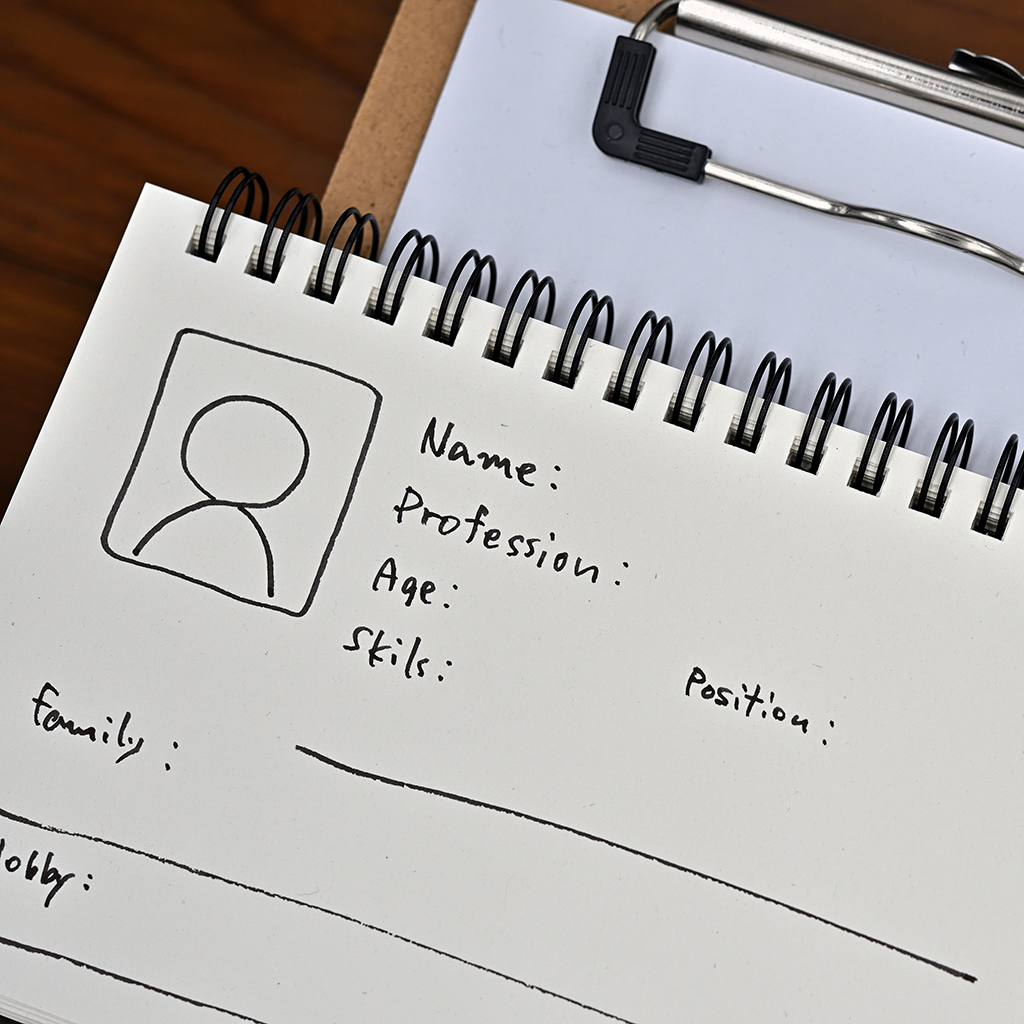 Name:
Profession:
Age:
Skils:
Position:
Family:
obby: